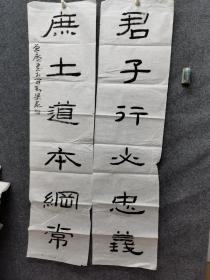 君子行必忠義
庶土道本綱常